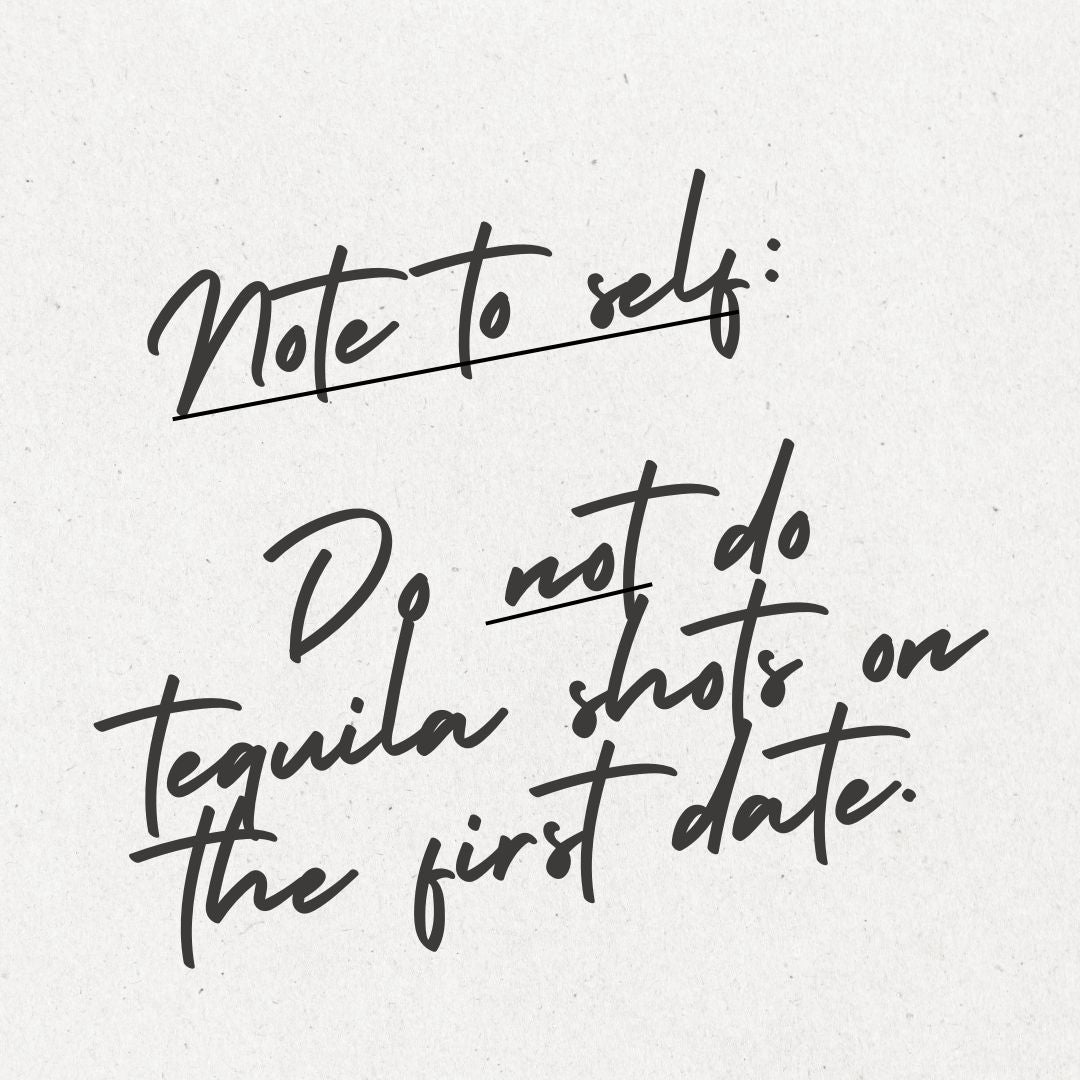 Note to self:
Do not do
tequila shots on
the first date.